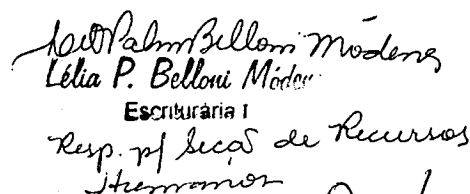 Belloni Módena
Lélia P. Belloni Móden
Escriturária I
Resp. p/ Secção de Recursos
Humanos